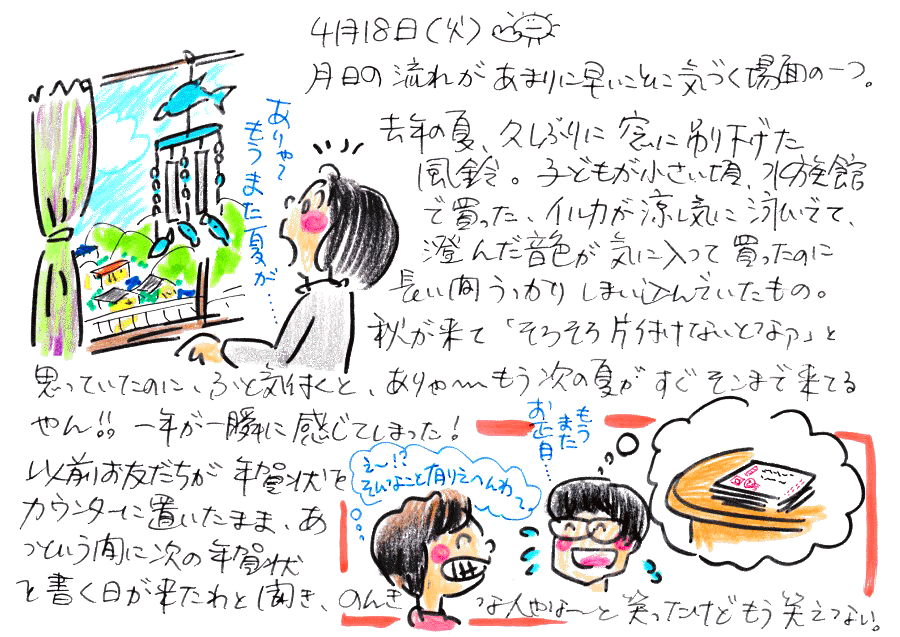 4月18日(火)
月日の流れがあまりに早いことに気づく場面の一つ。
去年の夏、久しぶりに窓に吊り下げた
風鈴。子どもが小さい頃、水族館
で買った、イルカが涼し気に泳いでて、
澄んだ音色が気に入って買ったのに
長い間うっかりしまい込んでいたもの。
秋が来て「そろそろ片付けないとなァ」と
思っていたのに、ふと気付くと、ありゃ〜もう次の夏がすぐそこまで来てる
やん!!一年が一瞬に感じてしまった!
以前お友だちが年賀状を
カウンターに置いたまま、あ
っという間に次の年賀状
を書く日が来たわと聞き、のんき
な人やな〜と笑ったけどもう笑えない。
ありゃ〜
もうまた夏が…
えー!?
そんなこと有りえへんわ〜
もう
また
お正月…